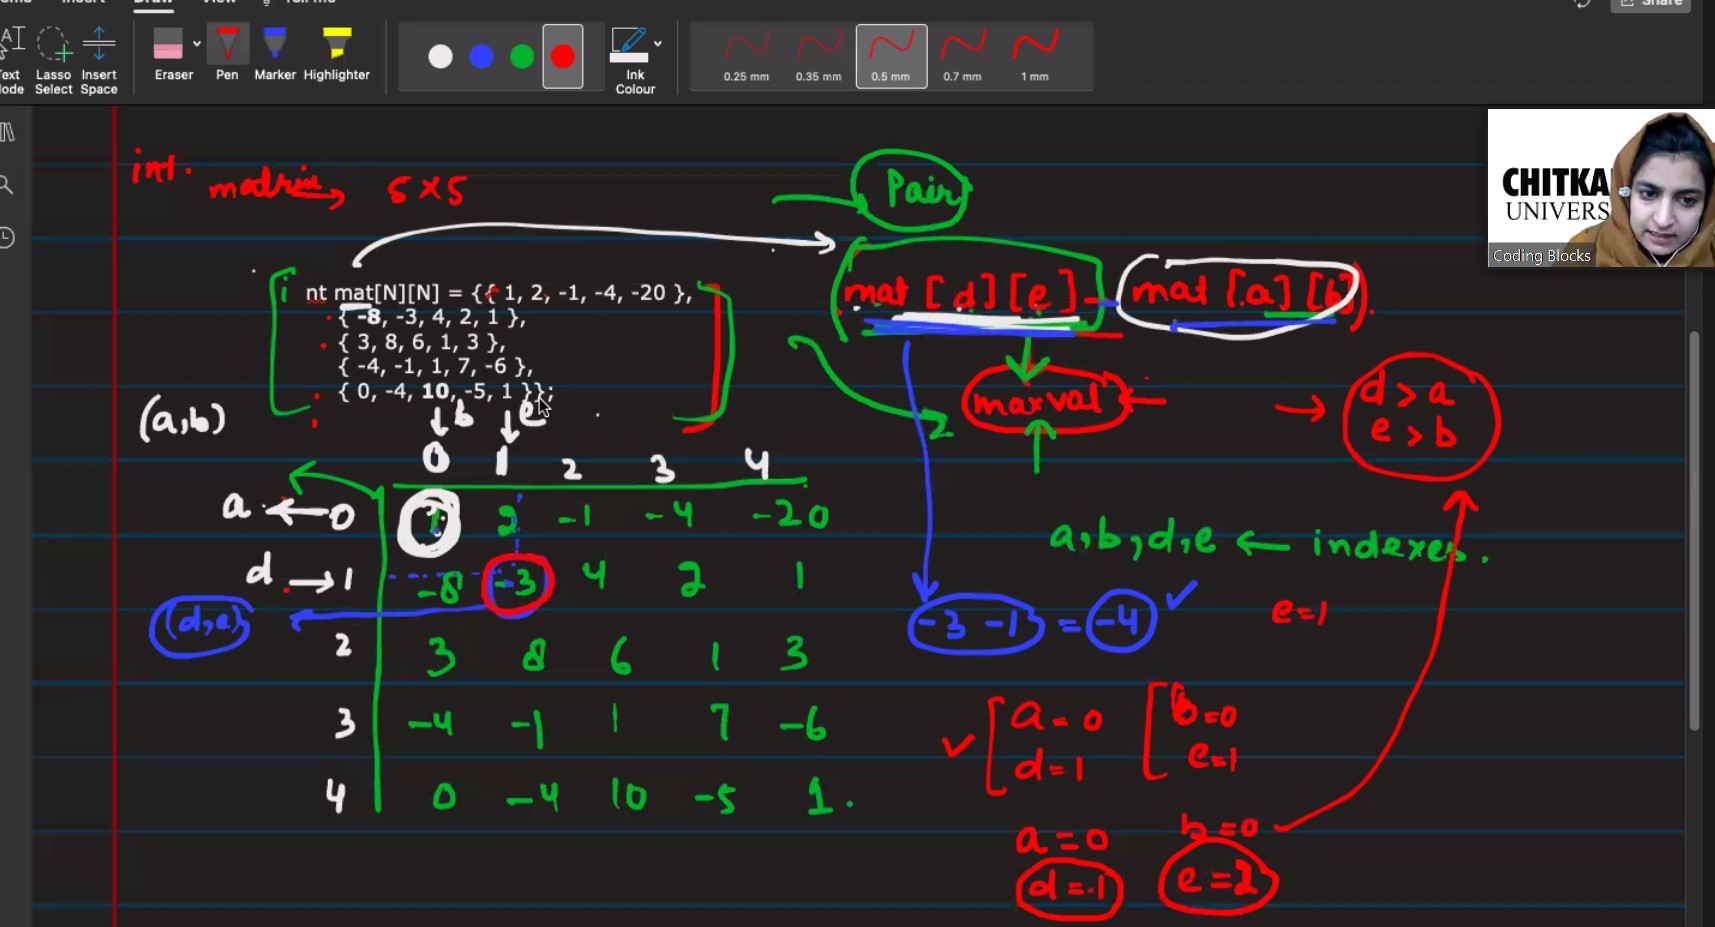 Insert
Draw
View
Tell me
Share
Text Mode
Lasso Select
Insert Space
Eraser
Pen
Marker
Highlighter
Ink Colour
0.25 mm
0.35 mm
0.5 mm
0.7 mm
1 mm
CHITKA
UNIVERS
Coding Blocks
int.
matrix → 5 × 5
Pair
int mat[N][N] = {{ 1, 2, -1, -4, -20 },
{ -8, -3, 4, 2, 1 },
{ 3, 8, 6, 1, 3 },
{ -4, -1, 1, 7, -6 },
{ 0, -4, 10, -5, 1 }};
(mat [d][e] - mat [a][b]).
maxval ←
→ d > a
e > b
(a,b)
↓ b ↓ e
0 1 2 3 4
a ← 0 1 2 -1 -4 -20
d → 1 -8 -3 4 2 1
(d,e)
2 3 8 6 1 3
3 -4 -1 1 7 -6
4 0 -4 10 -5 1.
a,b,d,e ← indexes.
-3 -1 = -4 ✓
e=1
✓ a = 0
d = 1
b=0
e=1
a = 0 b=0
d = 1 e = 2